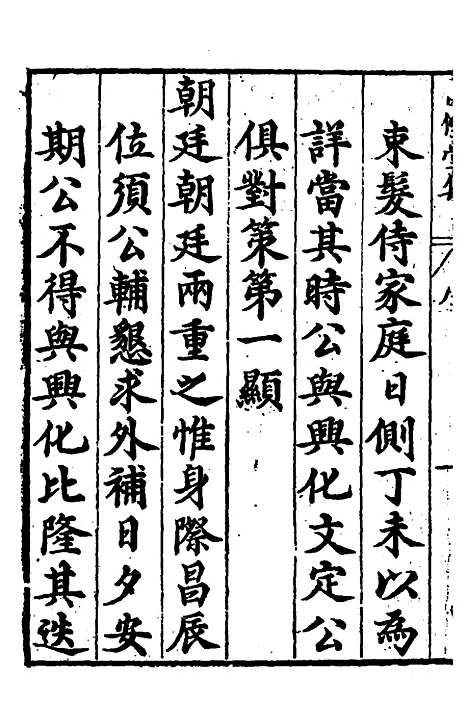 束髮侍家庭日側丁未以為
詳當其時公與興化文定公
俱對策第一顯
朝廷朝廷兩重之惟身際昌辰
位須公輔懇求外補日夕安
期公不得與興化比隆其迭